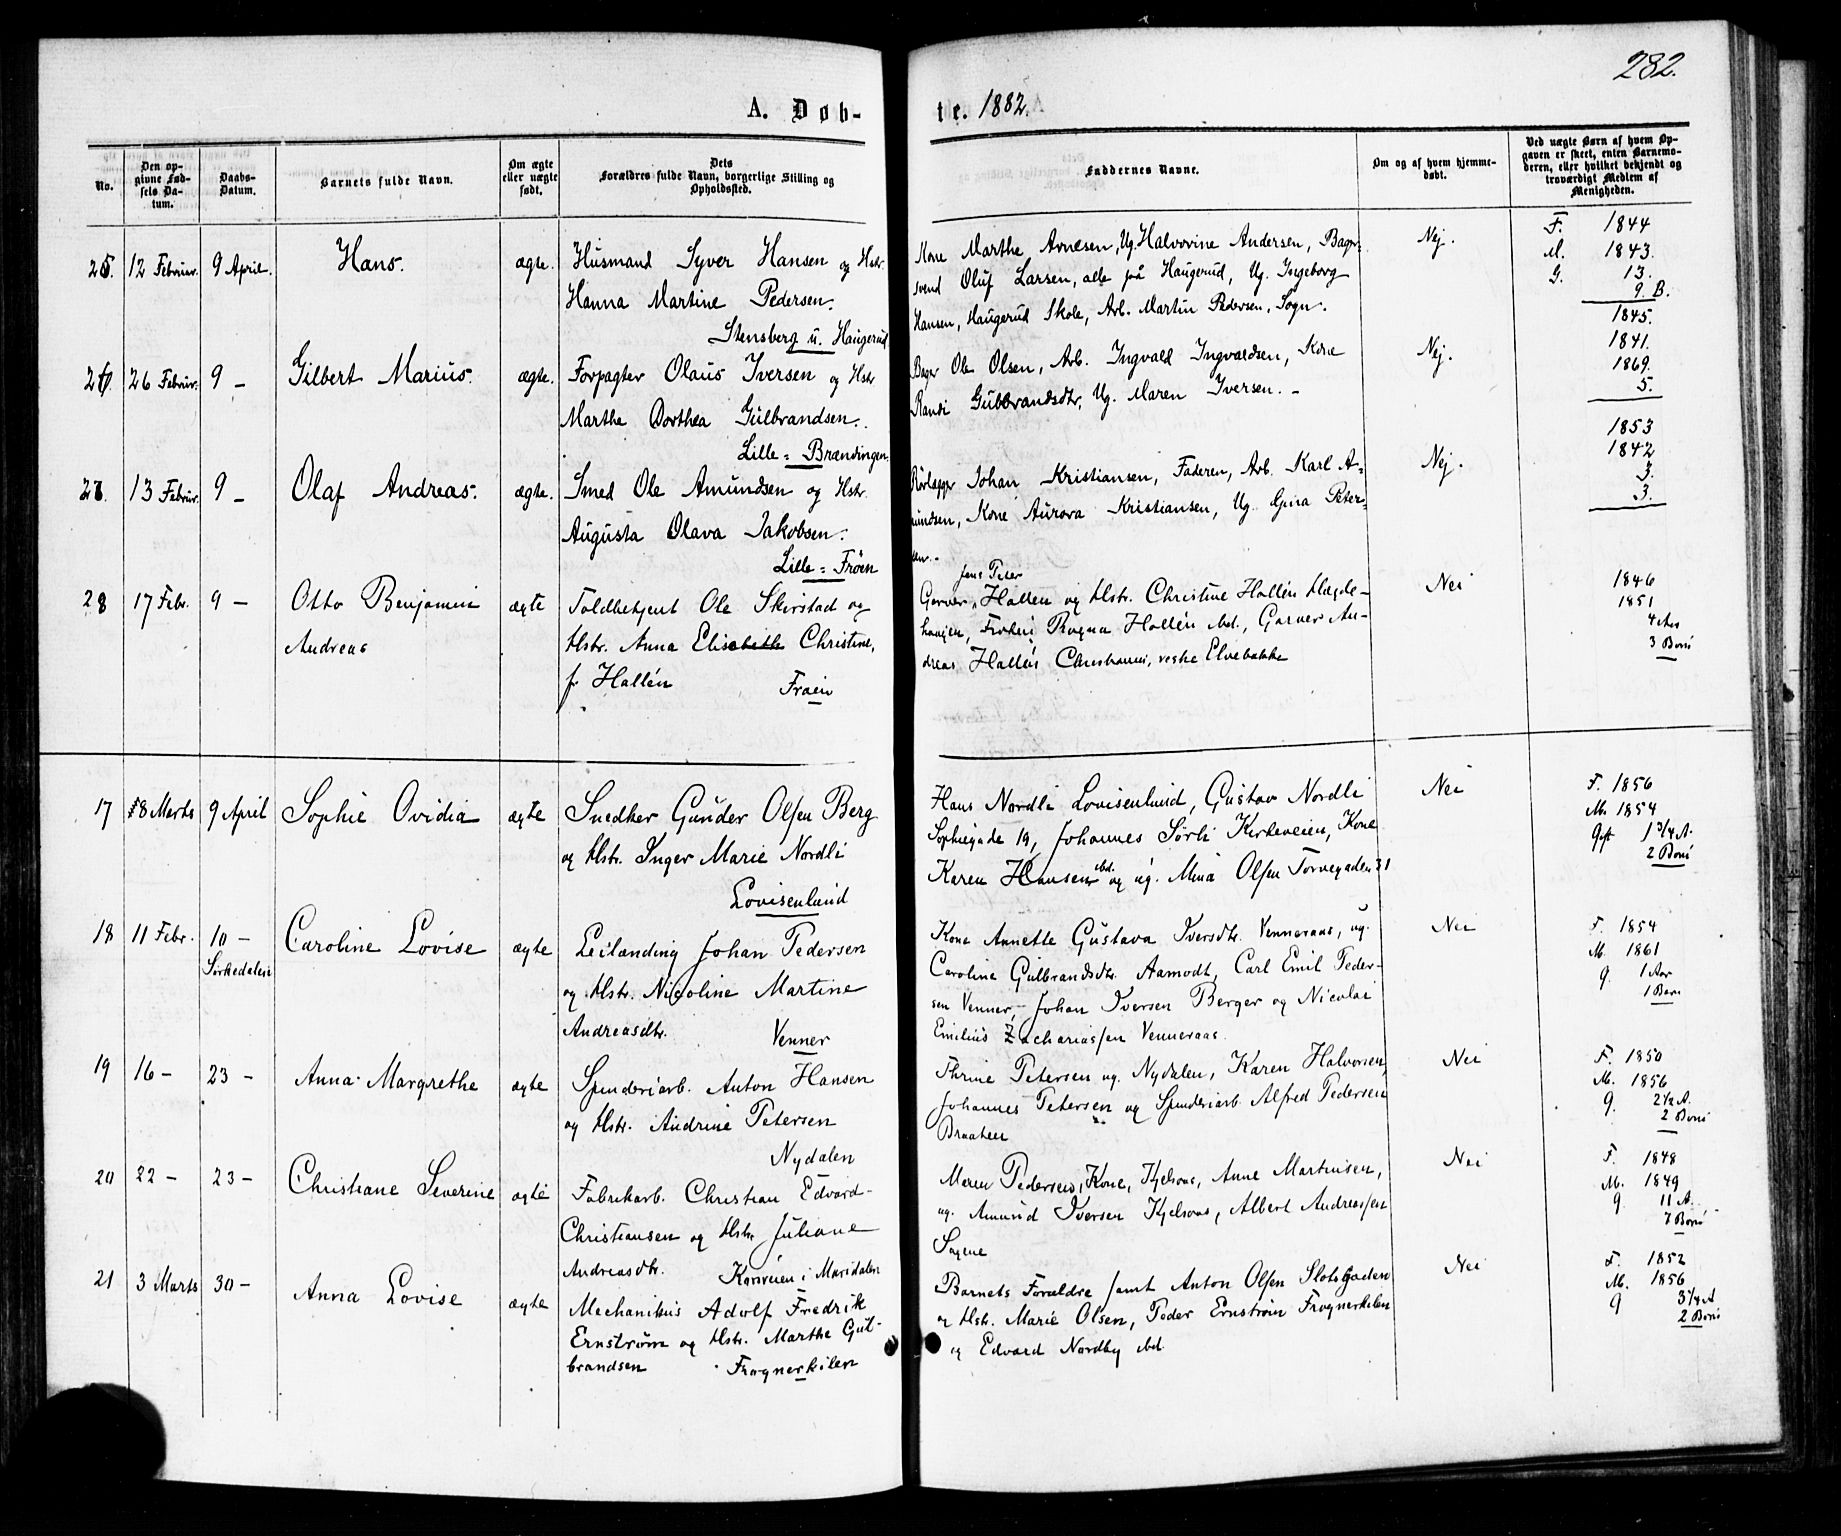 282.
A. Døb-
te. 1882.
No.
Den op-
givne Fød-
sels Da-
tum.
Daabs-
Datum.
Barnets fulde Navn.
Om ægte
eller uægte
født.
Dets
Forældres fulde Navn, borgerlige Stilling og
Opholdssted.
Faddernes Navne.
Om og af hvem hjemme-
døbt.
Ved uægte Børn af hvem Op-
gaven er skeet, enten Barnemo-
deren, eller hvilket bekjendt og
troværdigt Medlem af
Menigheden.
25. 12 Februar. 9 April. Hans. ægte. Husmand Syver Hansen og Hstr.
Hanna Martine Pedersen.
Stensberg u. Haugerud
Kone Marthe Arnesen, Ug. Halvorine Andersen, Bager-
svend Oluf Larsen, alle på Haugerud, Ug. Ingeborg
Hansen, Haugerud Skole, Arb. Martin Pedersen, Sogn.
Nej.
F. 1844
M. 1843.
G. 13.
9. B.
26. 26 Februar. 9 — Gilbert Marius. ægte. Forpagter Olaus Iversen og Hstr
Marthe Dorthea Gulbrandsen.
Lille-Brændingen.
Bager Ole Olsen, Arb. Ingvald Ingvaldsen, Kone
Randi Gulbrandsdtr, Ug. Maren Iversen. -
Nej.
1845.
1841.
1869.
5.
27. 13 Februar. 9 — Olaf Andreas. ægte. Smed Ole Amundsen og Hstr.
Augusta Olava Jakobsen.
Lille-Frøen
Rørlægger Johan Kristiansen, Faderen, Arb. Karl A-
mundsen, Kone Aurora Kristiansen, Ug. Gina Peter-
sen.
Nej.
1853
1842
3.
3.
28 17 Febr. 9 — Otto Benjamin
Andreas
ægte Toldbetjent Ole Skirstad og
Hstr. Anna Elisabeth Christine,
f. Hallén Frøen
Jens Peter
Garver Hallén og Hstr. Christine Hallén Hægde-
haugen, Frøken Ragna Hallén ibd., Garver An-
dreas Hallén Christiania, vestre Elvebakke
Nei
1846
1851
4 Aar
3 Børn
17 8 Marts 9 April Sophie Ovidia ægte Snedker Gunder Olsen Berg
og Hstr. Inger Marie Nordli
Lovisenlund
Hans Nordli Lovisenlund, Gustav Nordli
Sophiegade 19, Johannes Sørli Kirkeveien, Kone
Karen Hansen ibd. og ug. Mina Olsen Torvegaden 31
Nei
F. 1856
M. 1854
Gift 1 3/4 A.
2 Børn
18 11 Febr. 10 —
Sørkedalen
Caroline Lovise ægte Leilænding Johan Pedersen
og Hstr. Nicoline Martine
Andreasdtr. Venner
Kone Annette Gustava Iversdtr. Venneraas, ug.
Caroline Gulbrandsdtr. Aamodt, Carl Emil Peder-
sen Venner, Johan Iversen Berger og Nicolai
Emilius Zachariassen Venneraas.
Nei
F. 1854
M. 1861
g. 1 Aar
1 Barn
19 16 — 23 — Anna Margrethe ægte Spinderiarb. Anton Hansen
og Hstr. Andrine Petersen
Nydalen
Thrine Petersen ug. Nydalen, Karen Halvorsen,
Johannes Petersen og Spinderiarb. Alfred Pedersen
Braaten
Nei
F. 1850
M. 1856
g. 2 1/2 A.
2 Børn
20 22 — 23 — Christiane Severine ægte Fabrikarb. Christian Edvard
Christiansen og Hstr. Juliane
Andreasdtr. i Maridalen
Maren Pedersen, Kone, Kjelsaas, Anne Martinsen,
ug. Amund Iversen Kjelsaas, Albert Andreassen
Sagene
Nei
F. 1848
M. 1849
g 11 A.
7 Børn
21 3 Marts 30 — Anna Lovise ægte Mechanikus Adolf Fredrik
Ernstrøm og Hstr. Marthe Gul-
brandsen Frognerkilen
Barnets Forældre samt Anton Olsen Slotsgaden
og Hstr. Marie Olsen, Peder Ernstrøm Frognerkilen
og Edvard Nordby ibd.
Nei
F. 1852
M. 1856
g 3 1/4 A
2 Børn